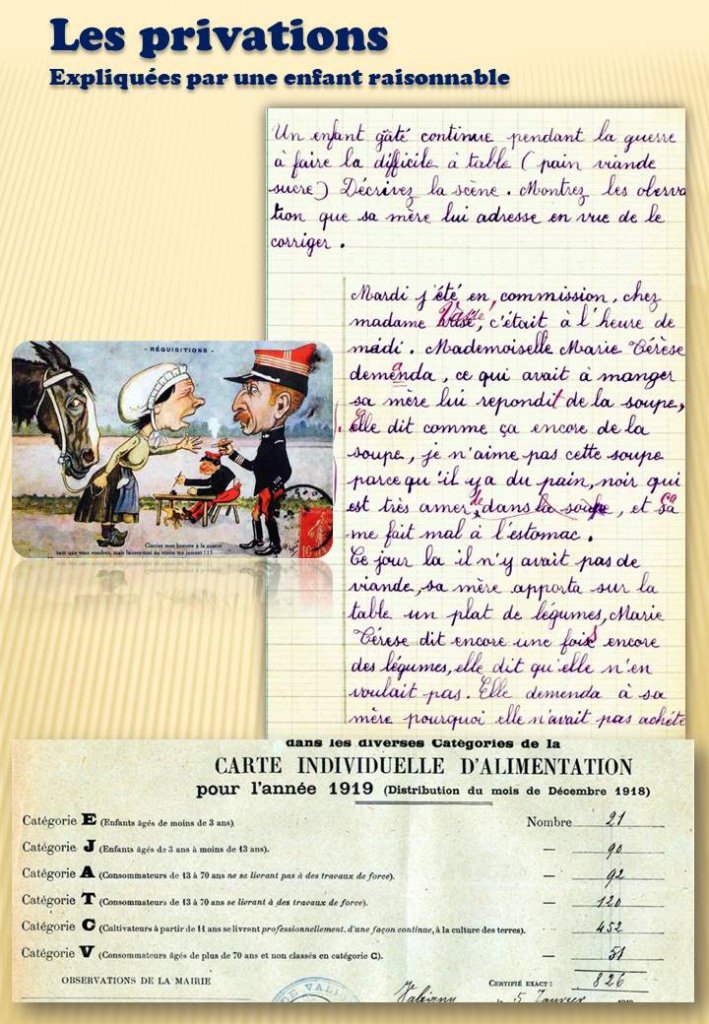 Les privations
Expliquées par une enfant raisonnable
Un enfant gâté continue pendant la guerre
à faire la difficile à table ( pain viande
sucre) Décrivez la scène. Montrez les oberva
tion que sa mère lui adresse en vue de le
corriger.
Mardi j'été en commission, chez
madame, c'était à l'heure de
midi. Mademoiselle Marie Térèse
demenda, ce qui avait à manger
sa mère lui repondit de la soupe,
Elle dit comme ça encore de la
soupe, je n'aime pas cette soupe
parce qu'il y a du pain, noir qui
est très amer, dans la soupe, et sa
me fait mal à l'estomac.
Ce jour la il n'y avait pas de
viande, sa mère apporta sur la
table un plat de légumes, Marie
Térese dit encore une fois encore
des légumes, elle dit qu'elle n'en
voulait pas. Elle demenda à sa
mère pourquoi elle n'avait pas achété
- RÉQUISITIONS -
dans les diverses Catégories de la
CARTE INDIVIDUELLE D'ALIMENTATION
pour l'année 1919 (Distribution du mois de Décembre 1918)
Catégorie E (Enfants âgés de moins de 3 ans). Nombre 21
Catégorie J (Enfants âgés de 3 ans à moins de 13 ans). — 90
Catégorie A (Consommateurs de 13 à 70 ans ne se livrant pas à des travaux de force). — 92
Catégorie T (Consommateurs de 13 à 70 ans se livrant à des travaux de force). — 120
Catégorie C (Cultivateurs à partir de 14 ans se livrant professionnellement, d'une façon continue, à la culture des terres). — 452
Catégorie V (Consommateurs âgés de plus de 70 ans et non classés en catégorie C). — 51
826
OBSERVATIONS DE LA MAIRIE
CERTIFIÉ EXACT :
5 Janvier